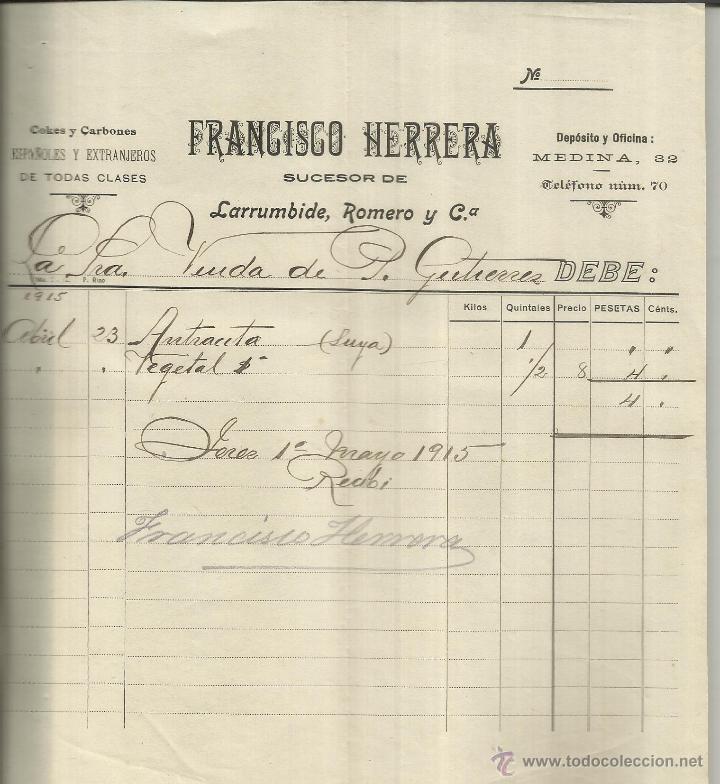 Nº
Cokes y Carbones
ESPAÑOLES Y EXTRANJEROS
DE TODAS CLASES
FRANCISCO HERRERA
SUCESOR DE
Larrumbide, Romero y C.ª
Depósito y Oficina:
MEDINA, 32
Teléfono núm. 70
La Sra. Viuda de P. Gutierrez DEBE:
P. Rino
1915
Kilos Quintales Precio PESETAS Cénts.
Abril 23 Antracita (Suya) 1 " "
" " Vegetal 1ª 1/2 8 4 "
4 "
Jerez 1º Mayo 1915
Recibi
Francisco Herrera
www.todocoleccion.net